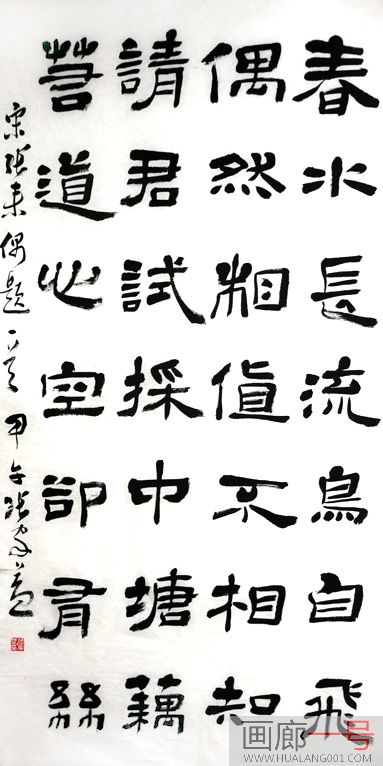 春水長流鳥自飛
偶然相值不相知
請君試採中塘藕
苦道心空卻有絲
宋張耒偶題一首甲午張
画廊一号
WWW.HUALANG001.COM